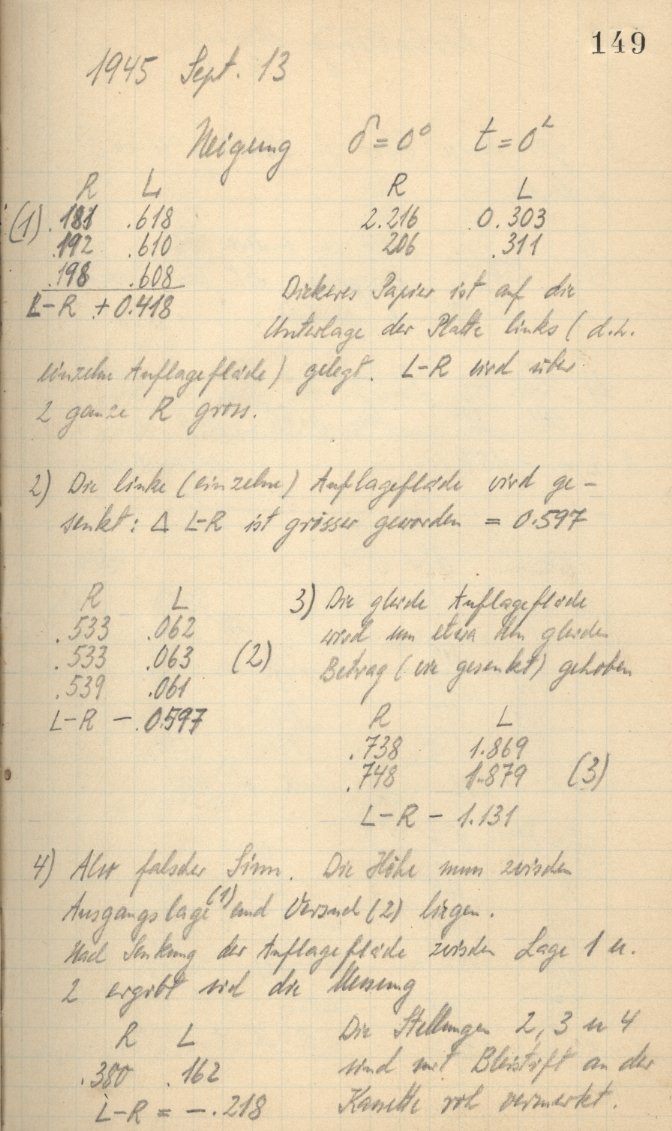 149
1945 Sept. 13
Neigung δ = 0° t = 0h
R L
(1) .181 .618
.192 .610
.198 .608
L-R + 0.418
R L
2.216 0.303
206 .311
Dickeres Papier ist auf die
Unterlage der Platte links (d.h.
einzelne Auflagefläche) gelegt. L-R wird über
2 ganze R gross.
2) Die linke (einzelne) Auflagefläche wird ge-
senkt: Δ L-R ist grösser geworden = 0.597
R L
.533 .062
.533 .063 (2)
.539 .061
L-R - 0.597
3) Die gleiche Auflagefläche
wird um etwa den gleichen
Betrag (wie gesenkt) gehoben
R L
.738 1.869
.748 1.879 (3)
L-R - 1.131
4) Also falscher Sinn. Die Höhe muss zwischen
Ausgangslage (1) und Versuch (2) liegen.
Nach Senkung der Auflagefläche zwischen Lage 1 u.
2 ergibt sich die Messung
R L
.380 .162
L-R = -.218
Die Stellungen 2, 3 u 4
sind mit Bleistift an der
Kassette roh vermerkt.